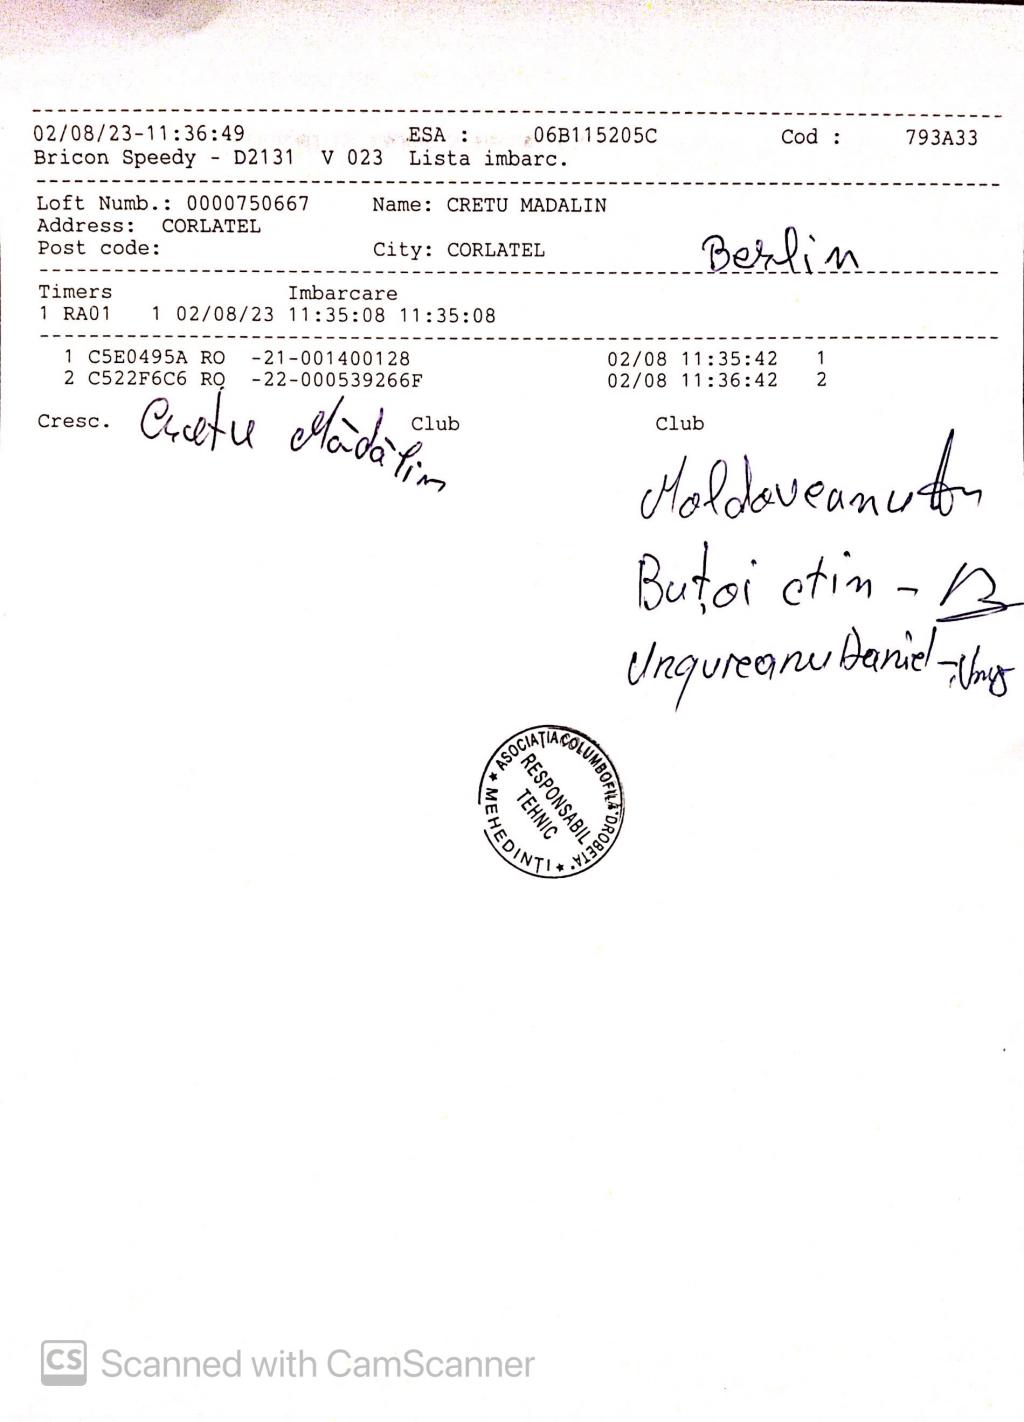 02/08/23-11:36:49 ESA : 06B115205C Cod : 793A33
Bricon Speedy - D2131 V 023 Lista imbarc.
Loft Numb.: 0000750667 Name: CRETU MADALIN
Address: CORLATEL
Post code: City: CORLATEL
Berlin
Timers Imbarcare
1 RA01 1 02/08/23 11:35:08 11:35:08
1 C5E0495A RO -21-001400128 02/08 11:35:42 1
2 C522F6C6 RO -22-000539266F 02/08 11:36:42 2
Cresc. Crețu Mădălin Club Club
Moldoveanu
Buțoi ctin -
Ungureanu Daniel -
ASOCIAȚIA COLUMBOFILĂ "DROBETA"
RESPONSABIL
TEHNIC
* MEHEDINTI *
CS Scanned with CamScanner